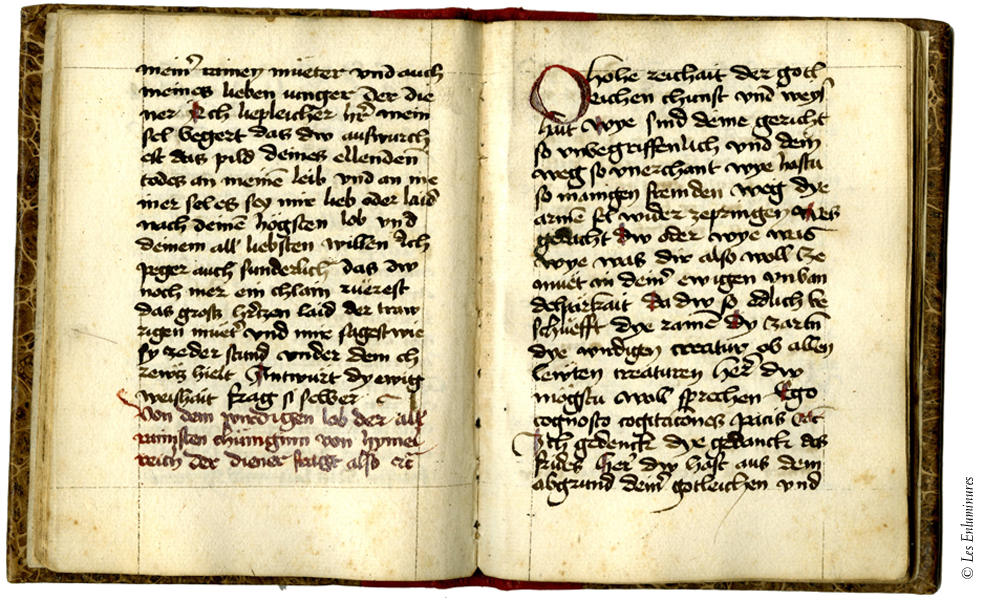 meinˀ rainen mueter vnd auch
meines lieben iunger der die
ner Ich liepleicher hrˀ mein
sel begert das dw auswurch
est das pild deines ellenden
todes an meinē leib vnd an me
iner sel es sey mir lieb oder laid
nach deinē högsten lob vnd
deinem all liebsten willen Ich
peger auch sunderlich das dw
noch mer ein chlain rüerest
das gross hrczen laid der traw
rigen müetˀ vnd mir sagest wie
sy ze der stund vnder dem ch
rewcz hielt Antwurt dy ewig
weishait frag sy selber
Von dem wirdigen lob der all
rainsten chünginn von hymel
reich der diener fragt also etc
O hohe reichait der gotl
eichen chunst vnd weys
hait wye sind deine gericht
so vnbegriffenlich vnd dein
weg so vnerchant wye hastu
so manigen fremden weg dye
armē sel wider zepringen wes
gedacht dw oder wye was
wye was dir also woll ze
muet in deinˀ ewigen vnban
delparkait Da dw so edlich be
schuefft dye rainē dy zartn
dye wirdigen creatur ob allen
lewten creaturen herˀ dw
mogstu woll sprechen Ego
cognosco cogitacōnes pacis etc
Ich gedenck dye gedanck des
frides herˀ dw hast aus dem
abgrund deinˀ gotleichen vnd
© Les Enluminures